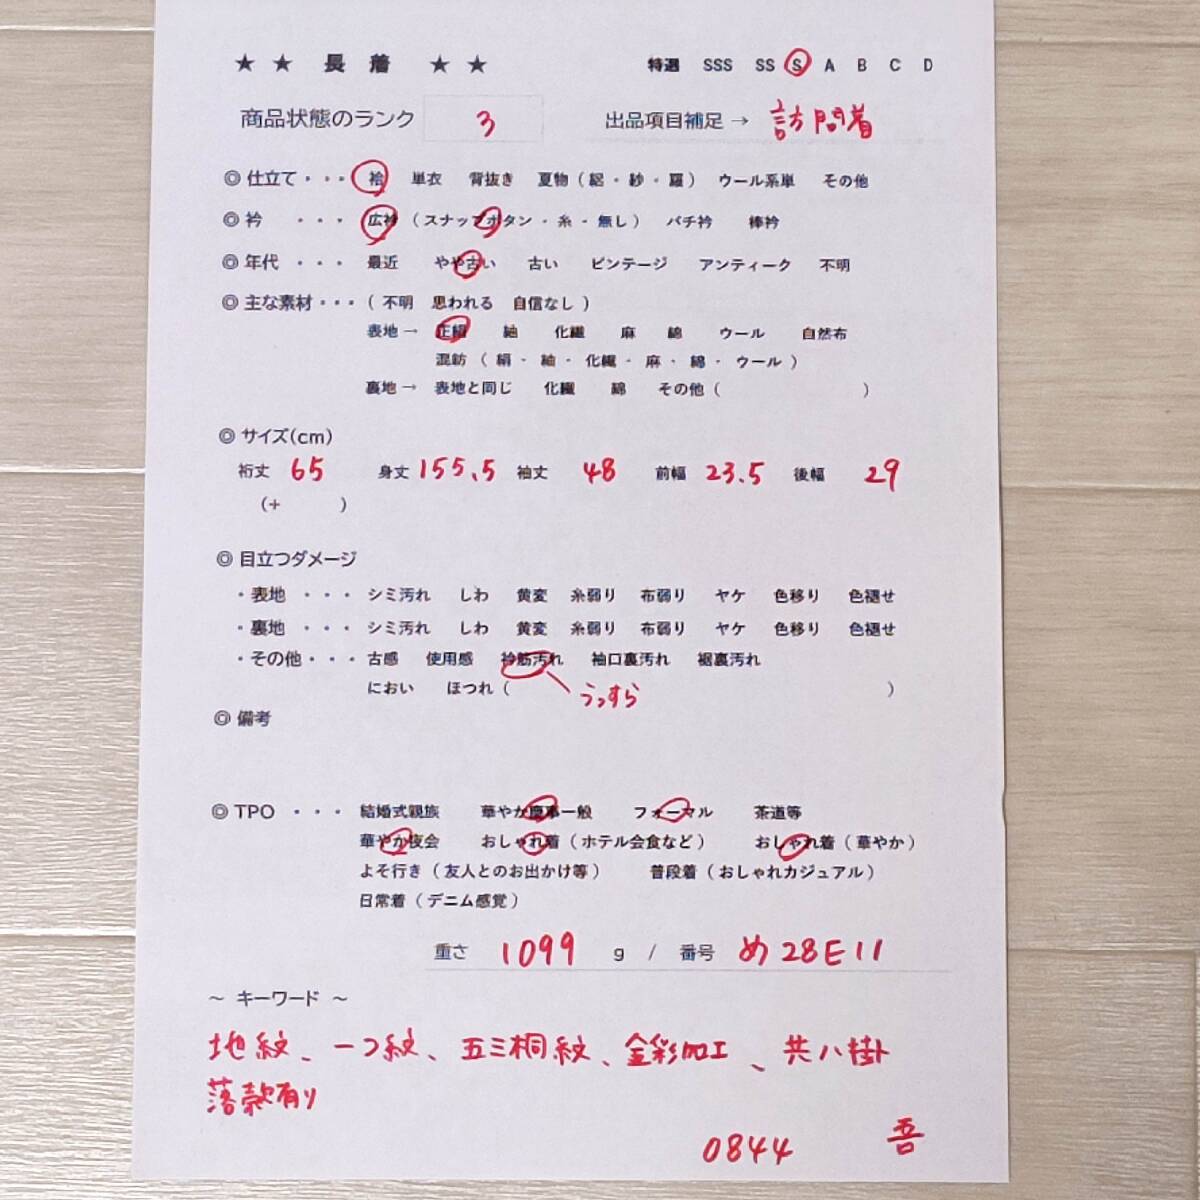 ★ ★ 長 着 ★ ★ 特選 SSS SS S A B C D
商品状態のランク 3 出品項目補足 → 訪問着
◎ 仕立て・・・ 袷 単衣 背抜き 夏物 ( 絽 ・ 紗 ・ 羅 ) ウール系単 その他
◎ 衿 ・・・ 広衿 ( スナップボタン ・ 糸 ・ 無し ) バチ衿 棒衿
◎ 年代 ・・・ 最近 やや古い 古い ビンテージ アンティーク 不明
◎ 主な素材・・・ ( 不明 思われる 自信なし )
表地 → 正絹 紬 化繊 麻 綿 ウール 自然布
混紡 ( 絹 ・ 紬 ・ 化繊 ・ 麻 ・ 綿 ・ ウール )
裏地 → 表地と同じ 化繊 綿 その他 ( )
◎ サイズ(cm)
裄丈 65 身丈 155.5 袖丈 48 前幅 23.5 後幅 29
(+ )
◎ 目立つダメージ
・表地 ・・・ シミ汚れ しわ 黄変 糸弱り 布弱り ヤケ 色移り 色褪せ
・裏地 ・・・ シミ汚れ しわ 黄変 糸弱り 布弱り ヤケ 色移り 色褪せ
・その他・・・ 古感 使用感 衿筋汚れ 袖口裏汚れ 裾裏汚れ
におい ほつれ ( うっすら )
◎ 備考
◎ TPO ・・・ 結婚式親族 華やか慶事一般 フォーマル 茶道等
華やか夜会 おしゃれ着 ( ホテル会食など ) おしゃれ着 ( 華やか )
よそ行き ( 友人とのお出かけ等 ) 普段着 ( おしゃれカジュアル )
日常着 ( デニム感覚 )
重さ 1099 g / 番号 め28E11
～ キーワード ～
地紋、一つ紋、五三桐紋、金彩加工、共八掛
落款有り
0844 吾